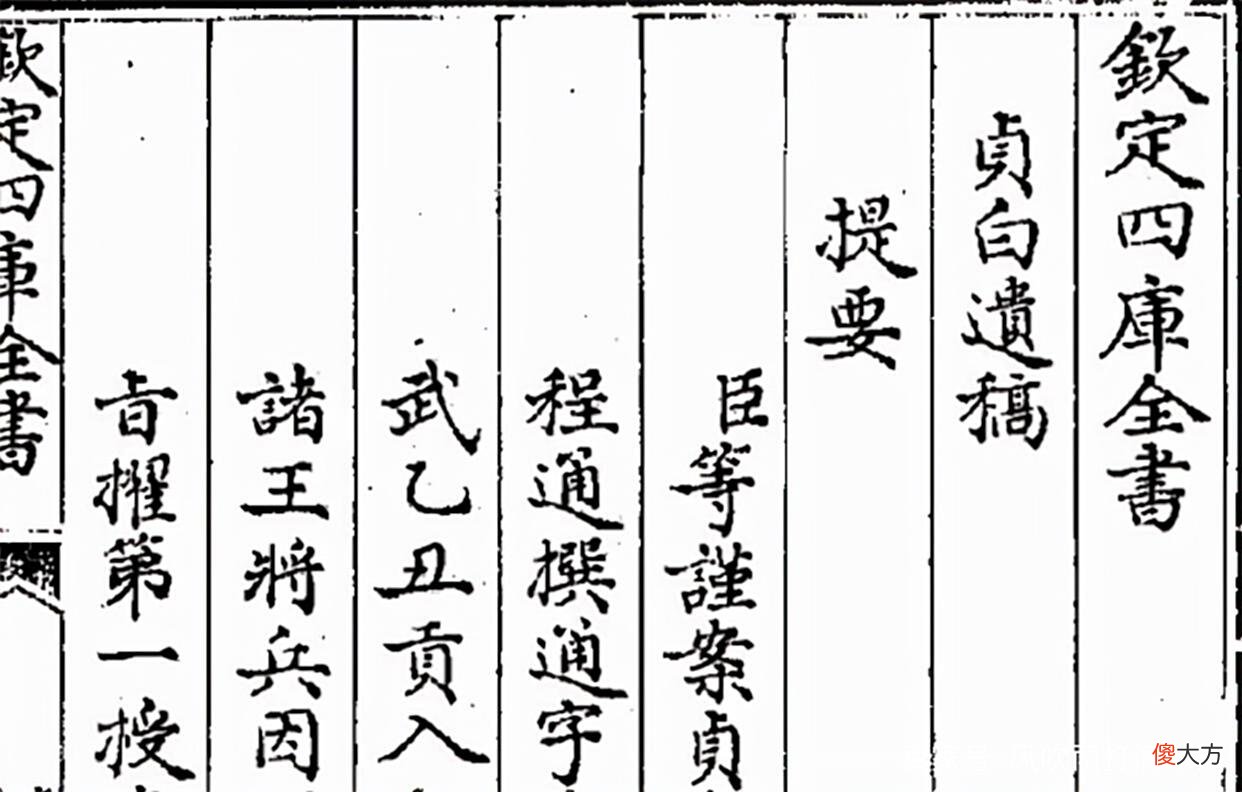 欽定四庫全書
貞白遺稿
提要
臣等謹案貞
程通撰通字
武乙丑貢入
諸王將兵因
旨擢第一授
欽定四庫全書
傻大方